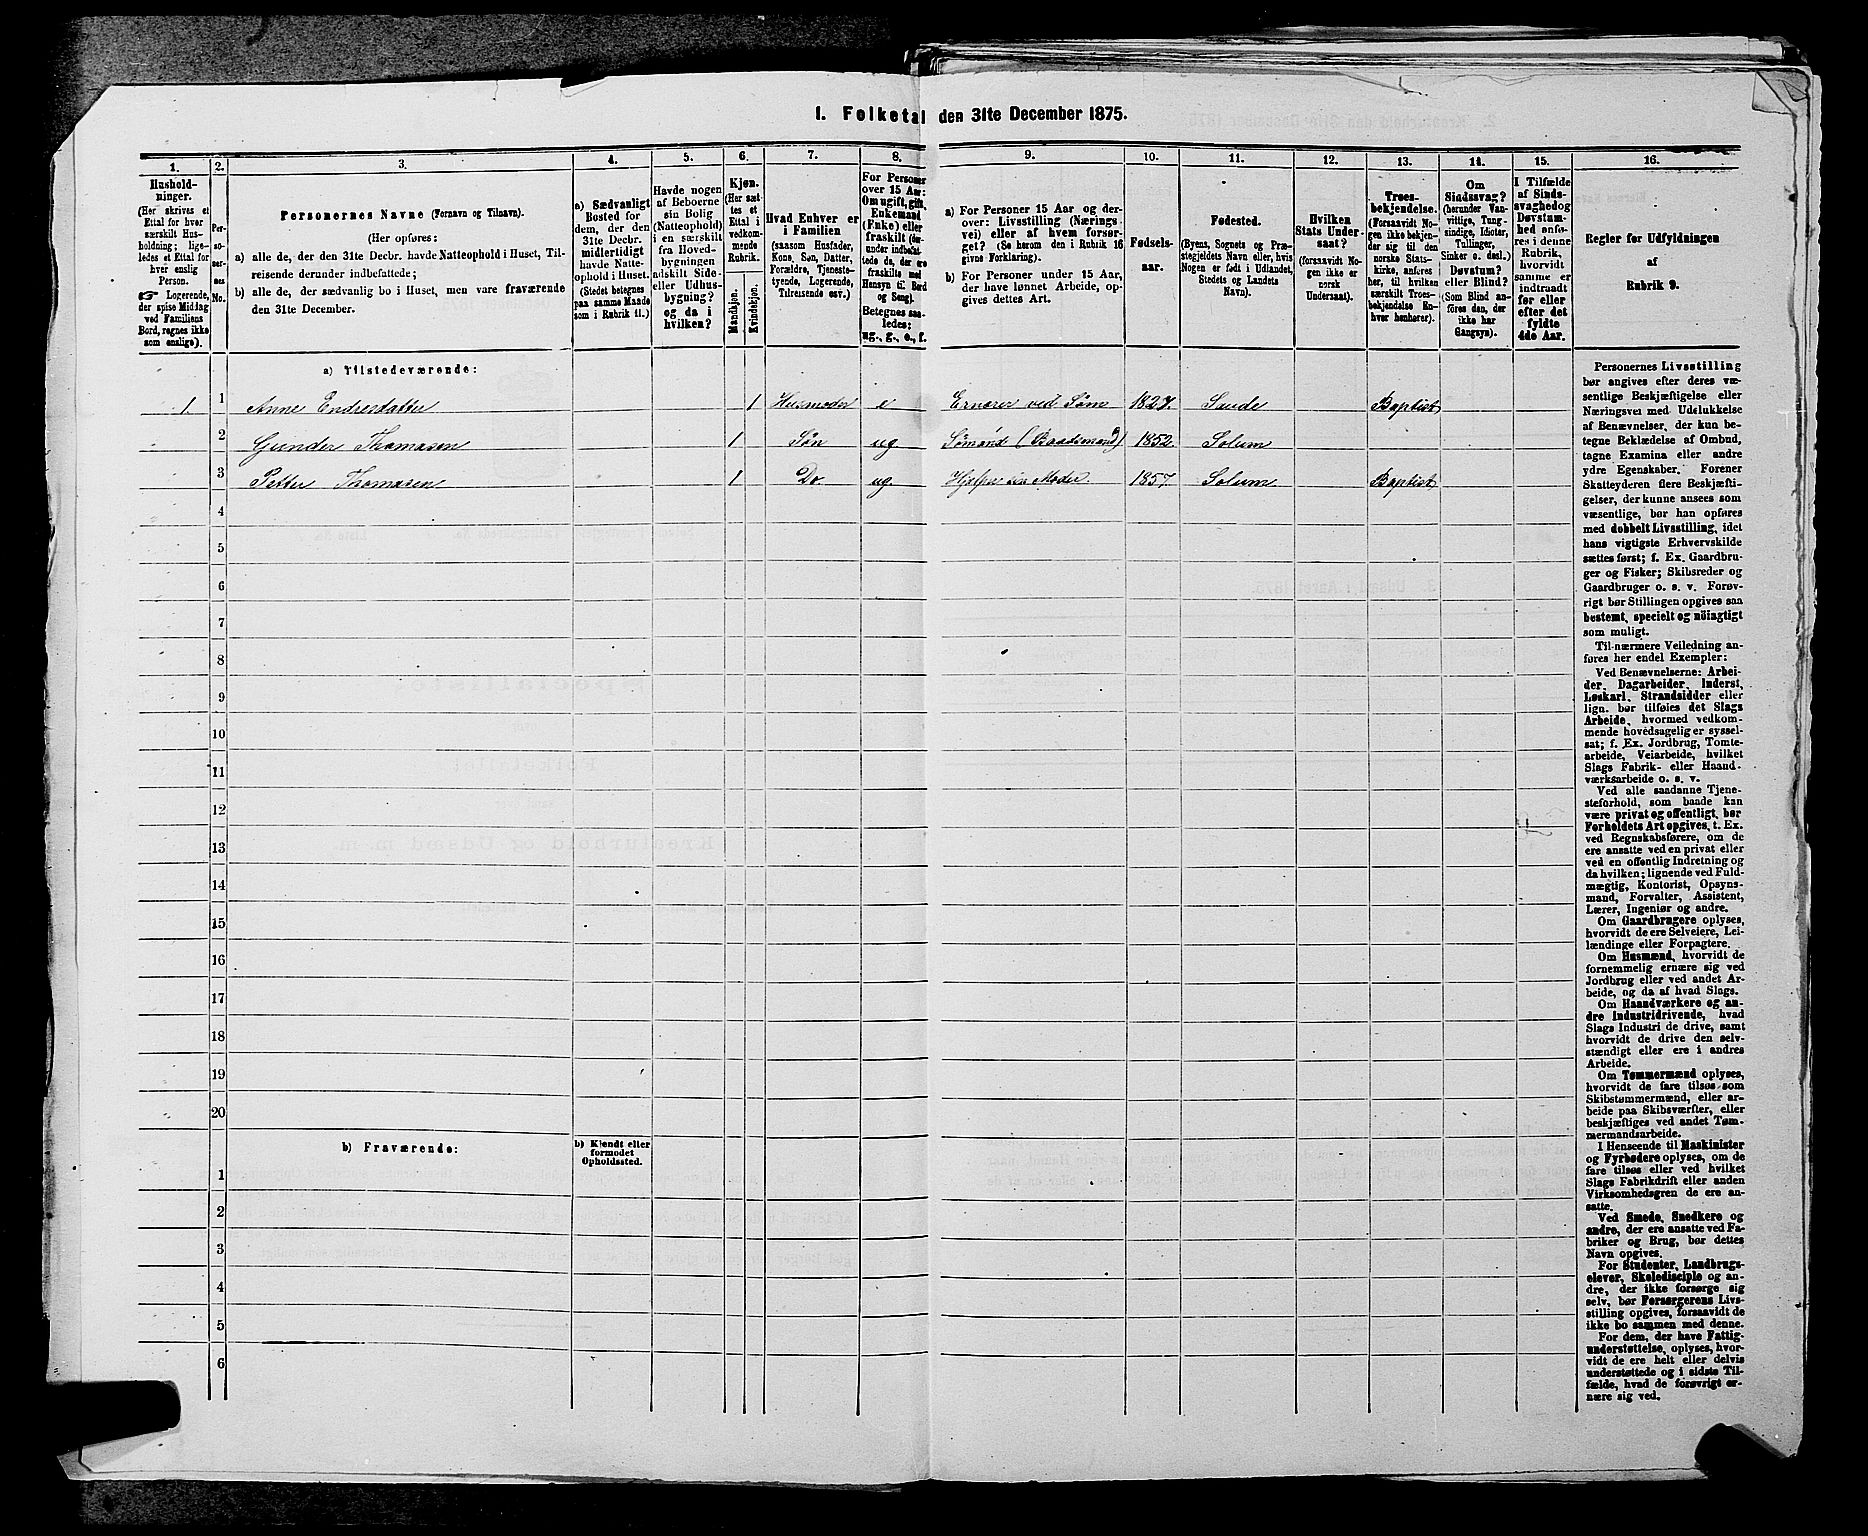 1. Folketal den 31te December 1875.
1. 2. 3. 4. 5. 6. 7. 8. 9. 10. 11. 12. 13. 14. 15. 16.
Hushold-
ninger.
(Her skrives et
Ettal for hver
særskilt Hus-
holdning; lige-
ledes et Ettal for
hver enslig
Person.
☞ Logerende,
der spise Middag
ved Familiens
Bord, regnes ikke
som enslige).
Per-
so-
ner-
nes
No.
Personernes Navne (Fornavn og Tilnavn).
(Her opføres:
a) alle de, der den 31te Decbr. havde Natteophold i Huset, Til-
reisende derunder indbefattede;
b) alle de, der sædvanlig bo i Huset, men vare fraværende
den 31te December.
a) Sædvanligt
Bosted for
dem, der den
31te Decbr.
midlertidigt
havde Natte-
ophold i Huset.
(Stedet betegnes
paa samme Maade
som i Rubrik 11.)
Havde nogen
af Beboerne
sin Bolig
(Natteophold)
i en særskilt
fra Hoved-
bygningen
adskilt Side-
eller Udhus-
bygning?
og da i
hvilken?
Kjøn.
(Her sæt-
tes et
Ettal i
vedkom-
mende
Rubrik.
Mandkjøn.
Kvindekjøn.
Hvad Enhver er
i Familien
(saasom Husfader,
Kone, Søn, Datter,
Forældre, Tjeneste-
tyende, Logerende,
Tilreisende osv.)
For Personer
over 15 Aar:
Om ugift, gift,
Enkemand
(Enke) eller
fraskilt (der-
under indbefat-
tede da, der ere
fraskilte med
Hensyn til Bord
og Seng).
Betegnes saa-
ledes:
ug., g., e., f.
a) For Personer 15 Aar og der-
over: Livsstilling (Nærings-
vei) eller af hvem forsør-
get? (Se herom den i Rubrik 16
givne Forklaring).
b) For Personer under 15 Aar,
der have lønnet Arbeide, op-
gives dettes Art.
Fødsels-
aar.
Fødested.
(Byens, Sognets og Præ-
stegjeldets Navn eller, hvis
Nogen er født i Udlandet,
Stedets og Landets
Navn).
Hvilken
Stats Under-
saat?
(forsaavidt No-
gen ikke er
norsk
Undersaat).
Troes-
bekjendelse.
(Forsaavidt No-
gen ikke bekjen-
der sig til den
norske Stats-
kirke, anføres
her, til hvilken
særskilt Troes-
bekjendelse En-
hver henhører).
Om
Sindssvag?
(herunder Van-
vittige, Tung-
sindige, Idioter,
Tullinger,
Sinker o. desl.).
Døvstum?
eller Blind?
(Som Blind an-
føres den, der
ikke har
Gangsyn).
I Tilfælde
af Sinds-
svaghed og
Døvstum-
hed anfø-
res i denne
Rubrik,
hvorvidt
samme er
indtraadt
før eller
efter det
fyldte
4de Aar.
Regler for Udfyldningen
af
Rubrik 9.
a) Tilstedeværende:
1 1 Anne Endresdatter 1 Husmoder e Ernærer ved Søm 1827. Saude Baptist
2 Gunder Thomasen 1 Søn ug Sømand (Baadsmand) 1852. Solum
3 Petter Thomasen 1 Do. ug. Hjælper sin Moder. 1857. Solum Baptist
4
5
6
7
8
9
10
11
12
13
14
15
16
17
18
19
20
b) Fraværende:
b) Kjendt eller
formodet
Opholdssted.
1
2
3
4
5
6
Personernes Livsstilling
bør angives efter deres væ-
sentlige Beskjæftigelse eller
Næringsvei med Udelukkelse
af Benævnelser, der kun be-
tegne Beklædelse af Ombud,
tagne Examina eller andre
ydre Egenskaber. Forener
Skatteyderen flere Beskjæfti-
gelser, der kunne ansees som
væsentlige, bør han opføres
med dobbelt Livsstilling, idet
hans vigtigste Erhvervskilde
sættes først; f. Ex. Gaardbru-
ger og Fisker; Skibsreder og
Gaardbruger o. s. v. Forøv-
rigt bør Stillingen opgives saa
bestemt, specielt og nöiagtigt
som muligt.
Til nærmere Veiledning an-
føres her endel Exempler:
Ved Benævnelserne: Arbei-
der, Dagarbeider, Inderst,
Løskarl, Strandsidder eller
lign. bør tilføies det Slags
Arbeide, hvormed vedkom-
mende hovedsagelig er syssel-
sat; f. Ex. Jordbrug, Tomte-
arbeide, Veiarbeide, hvilket
Slags Fabrik- eller Haand-
værksarbeide o. s. v.
Ved alle saadanne Tjene-
steforhold, som baade kan
være privat og offentligt, bør
Forholdets Art opgives, t. Ex.
ved Regnskabsførere, om de
ere ansatte ved en privat eller
ved en offentlig Indretning og
da hvilken; lignende ved Fuld-
mægtig, Kontorist, Opsyns-
mand, Forvalter, Assistent,
Lærer, Ingeniør og andre.
Om Gaardbrugere oplyses,
hvorvidt de ere Selveiere, Lei-
lændinge eller Forpagtere.
Om Husmænd, hvorvidt de
fornemmelig ernære sig ved
Jordbrug eller ved andet Ar-
beide, og da af hvad Slags.
Om Haandværkere og an-
dre Industridrivende, hvad
Slags Industri de drive, samt
hvorvidt de drive den selv-
stændigt eller ere i andres
Arbeide.
Om Tømmermænd oplyses,
hvorvidt de fare tilsøs som
Skibstømmermænd, eller ar-
beide paa Skibsværfter, eller
beskjæftiges ved andet Tøm-
mermandsarbeide.
I Henseende til Maskinister
og Fyrbødere oplyses, om de
fare tilsøs eller ved hvilket
Slags Fabrikdrift eller anden
Virksomhedsgren de ere an-
satte.
Ved Smede, Snedkere og
andre, der ere ansatte ved Fa-
briker og Brug, bør dettes
Navn opgives.
For Studenter, Landbrugs-
elever, Skoledisciple og an-
dre, der ikke forsørge sig
selv, bør Forsørgerens Livs-
stilling opgives, forsaavidt de
ikke bo sammen med denne.
For dem, der have Fattig-
understøttelse, oplyses, hvor-
vidt de ere helt eller delvis
understøttede og i sidste Til-
fælde, hvad de forøvrigt er-
nære sig ved.